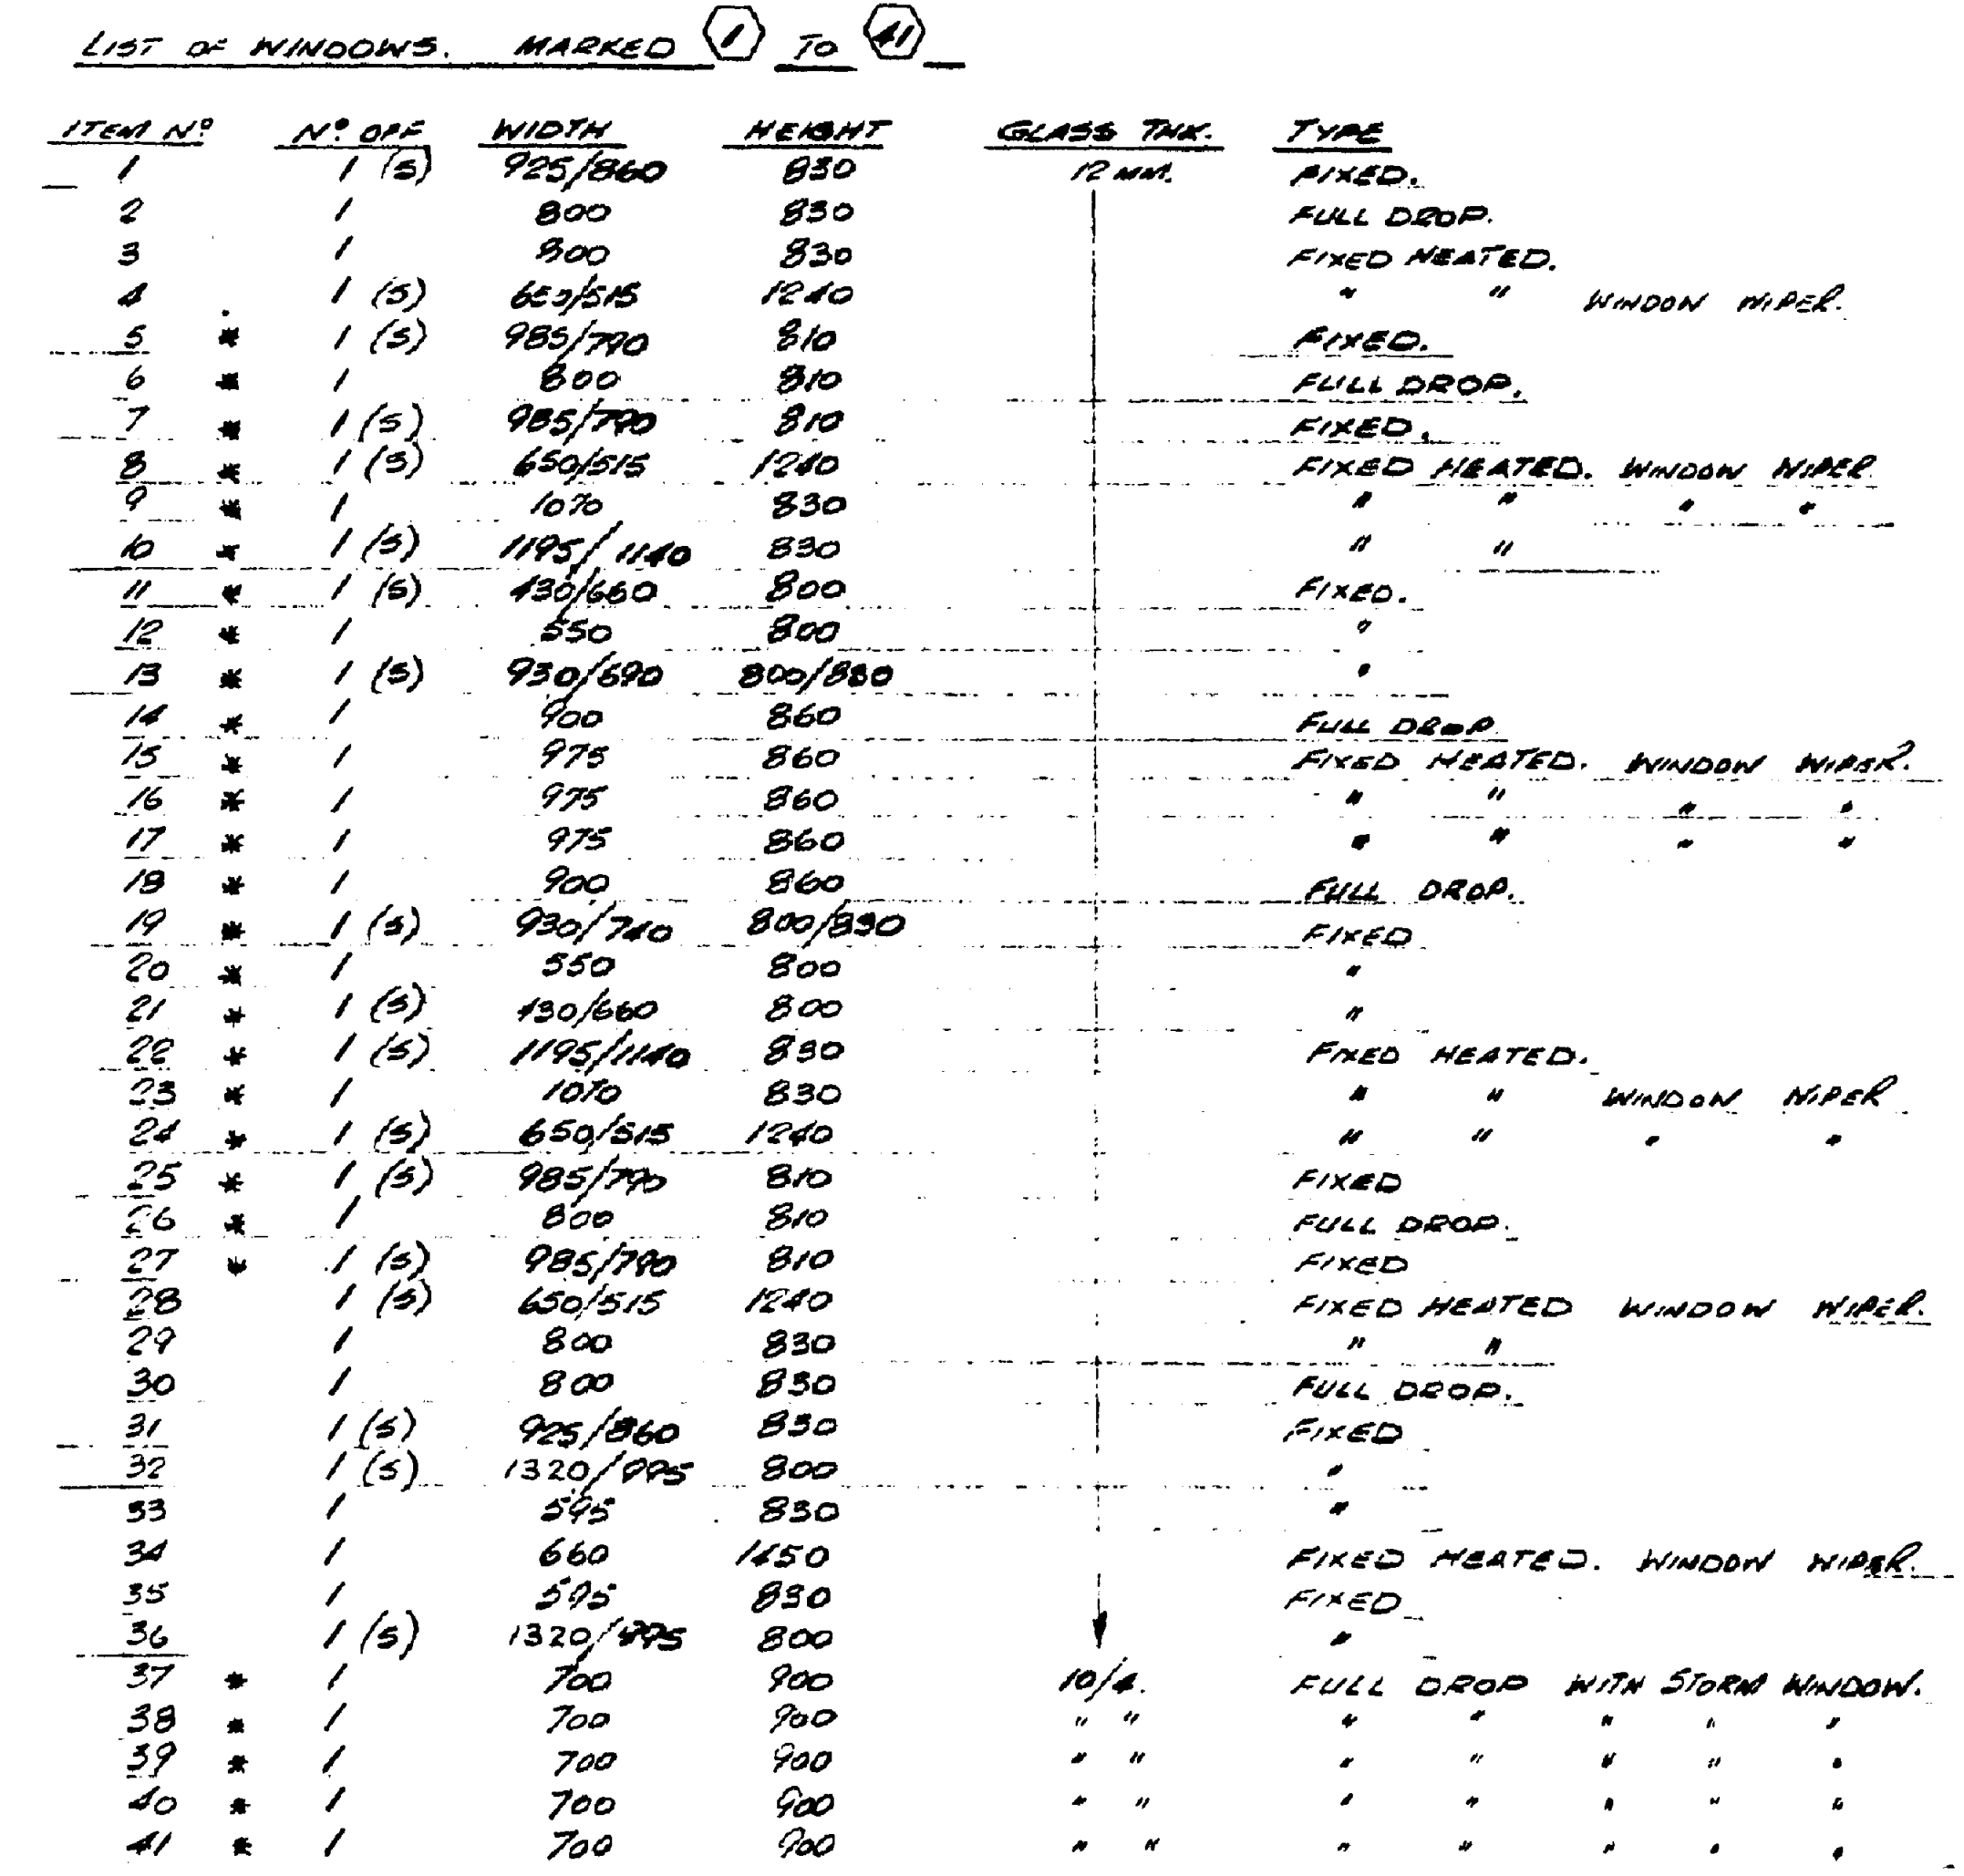 LIST OF WINDOWS. MARKED 1 TO 41
ITEM Nº Nº OFF WIDTH HEIGHT GLASS THK. TYPE
1 1 (S) 925/860 830 12 MM. FIXED.
2 1 800 830 FULL DROP.
3 1 800 830 FIXED HEATED.
4 1 (S) 650/515 1240 " " WINDOW WIPER.
5 * 1 (S) 985/790 810 FIXED.
6 * 1 800 810 FULL DROP.
7 * 1 (S) 985/790 810 FIXED.
8 * 1 (S) 650/515 1240 FIXED HEATED. WINDOW WIPER
9 * 1 1070 830 " " " "
10 * 1 (S) 1195/1140 830 " "
11 * 1 (S) 430/660 800 FIXED.
12 * 1 550 800 "
13 * 1 (S) 930/690 800/830 "
14 * 1 900 860 FULL DROP
15 * 1 975 860 FIXED HEATED. WINDOW WIPER.
16 * 1 975 860 " " " "
17 * 1 975 860 " " " "
18 * 1 900 860 FULL DROP.
19 * 1 (S) 930/740 800/830 FIXED
20 * 1 550 800 "
21 * 1 (S) 430/660 800 "
22 * 1 (S) 1195/1140 830 FIXED HEATED.
23 * 1 1070 830 " " WINDOW WIPER
24 * 1 (S) 650/515 1240 " " " "
25 * 1 (S) 985/790 810 FIXED
26 * 1 800 810 FULL DROP.
27 * 1 (S) 985/790 810 FIXED
28 1 (S) 650/515 1240 FIXED HEATED WINDOW WIPER.
29 1 800 830 " "
30 1 800 830 FULL DROP.
31 1 (S) 925/860 830 FIXED
32 1 (S) 1320/995 800 "
33 1 595 830 "
34 1 660 1450 FIXED HEATED. WINDOW WIPER.
35 1 595 830 FIXED
36 1 (S) 1320/995 800 "
37 * 1 700 900 10/4. FULL DROP WITH STORM WINDOW.
38 * 1 700 900 " " " " " " "
39 * 1 700 900 " " " " " " "
40 * 1 700 900 " " " " " " "
41 * 1 700 900 " " " " " " "